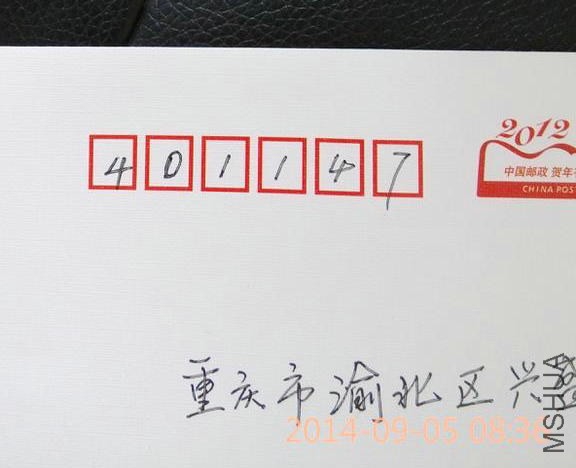 401147
2012
中国邮政 贺年
CHINA POST
重庆市渝北区兴
2014-09-05 08:36
MSHUA